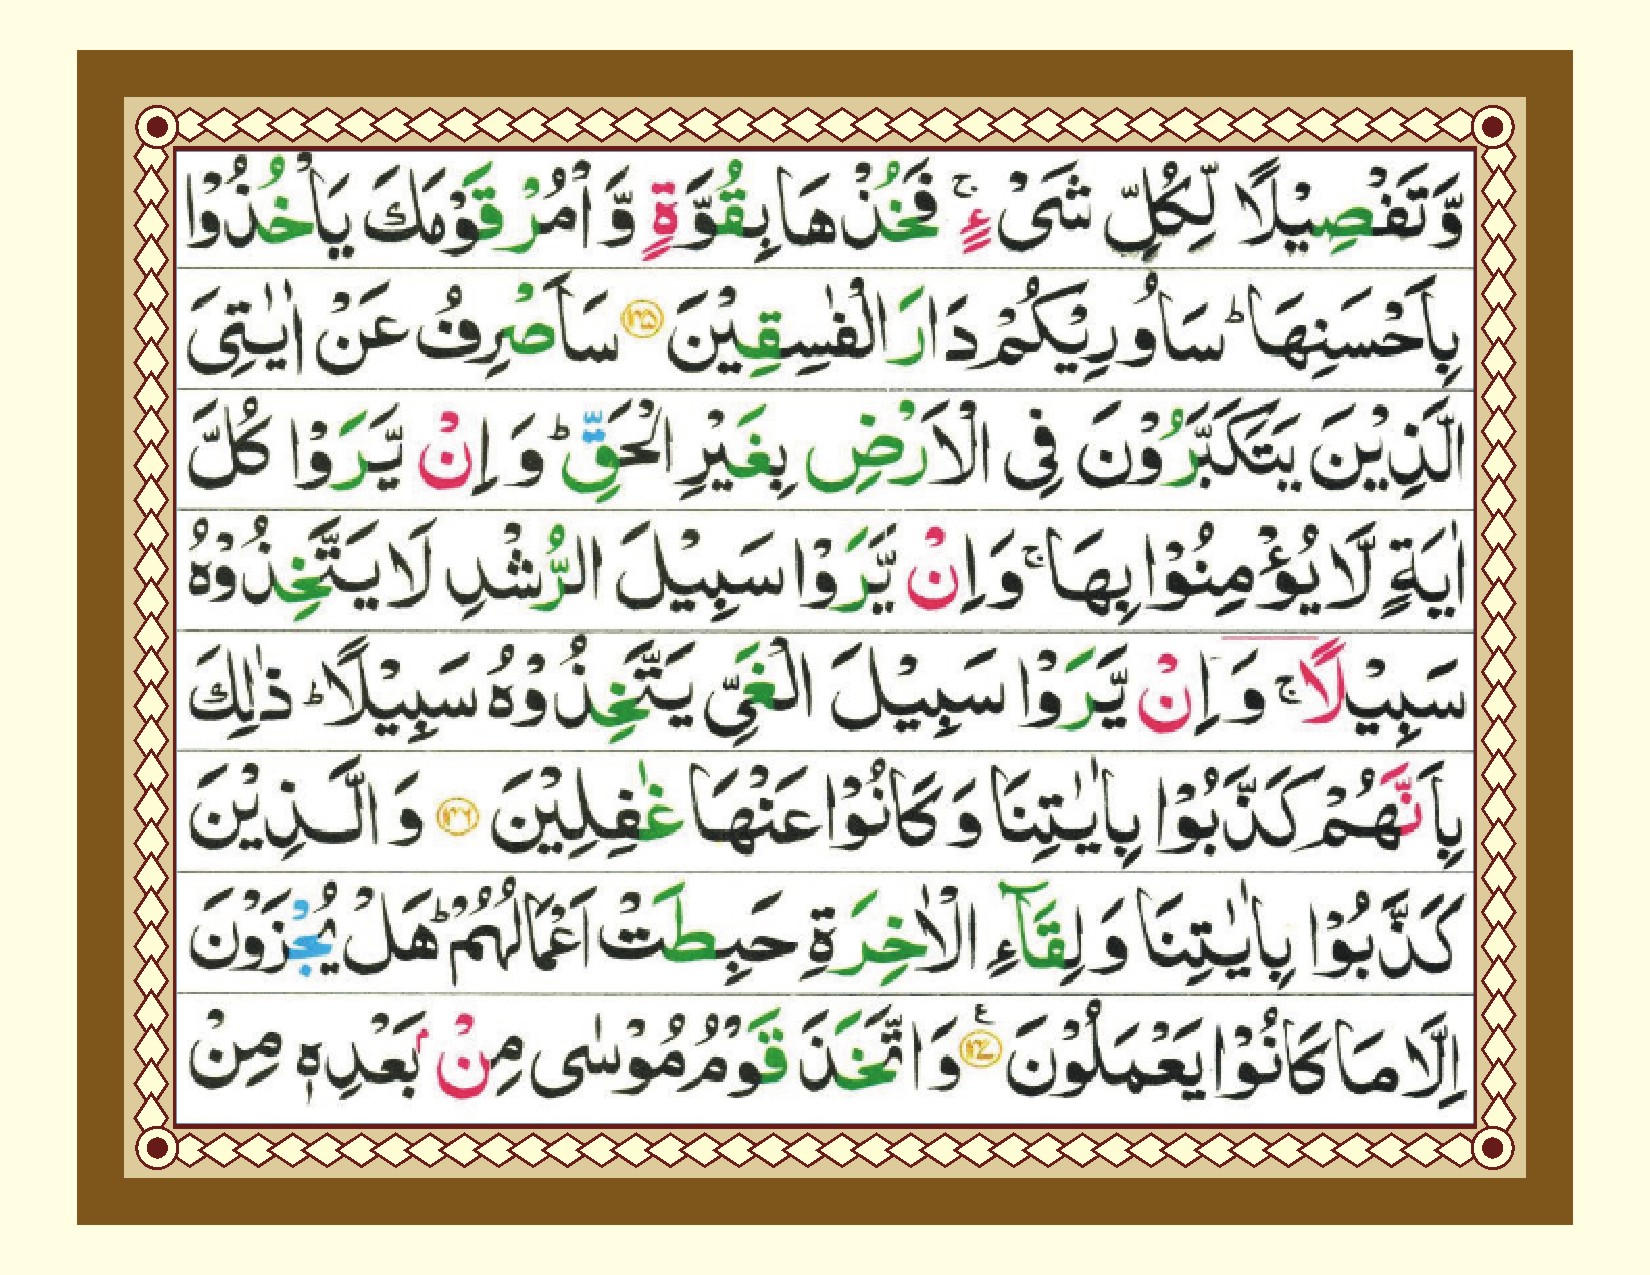 وَّ تَفْصِیْلًا لِّكُلِّ شَیْءٍ ۚ فَخُذْهَا بِقُوَّةٍ وَّ اْمُرْ قَوْمَكَ یَاْخُذُوْا
بِاَحْسَنِهَا ؕ سَاُورِیْكُمْ دَارَ الْفٰسِقِیْنَ ﴿۱۴۵﴾ سَاَصْرِفُ عَنْ اٰیٰتِیَ
الَّذِیْنَ یَتَكَبَّرُوْنَ فِی الْاَرْضِ بِغَیْرِ الْحَقِّ ؕ وَ اِنْ یَّرَوْا كُلَّ
اٰیَةٍ لَّا یُؤْمِنُوْا بِهَا ۚ وَ اِنْ یَّرَوْا سَبِیْلَ الرُّشْدِ لَا یَتَّخِذُوْهُ
سَبِیْلًا ۚ وَ اِنْ یَّرَوْا سَبِیْلَ الْغَیِّ یَتَّخِذُوْهُ سَبِیْلًا ؕ ذٰلِكَ
بِاَنَّهُمْ كَذَّبُوْا بِاٰیٰتِنَا وَ كَانُوْا عَنْهَا غٰفِلِیْنَ ﴿۱۴۶﴾ وَ الَّذِیْنَ
كَذَّبُوْا بِاٰیٰتِنَا وَ لِقَآءِ الْاٰخِرَةِ حَبِطَتْ اَعْمَالُهُمْ ؕ هَلْ یُجْزَوْنَ
اِلَّا مَا كَانُوْا یَعْمَلُوْنَ ﴿۱۴۷﴾ ع وَ اتَّخَذَ قَوْمُ مُوْسٰی مِنْۢ بَعْدِهٖ مِنْ